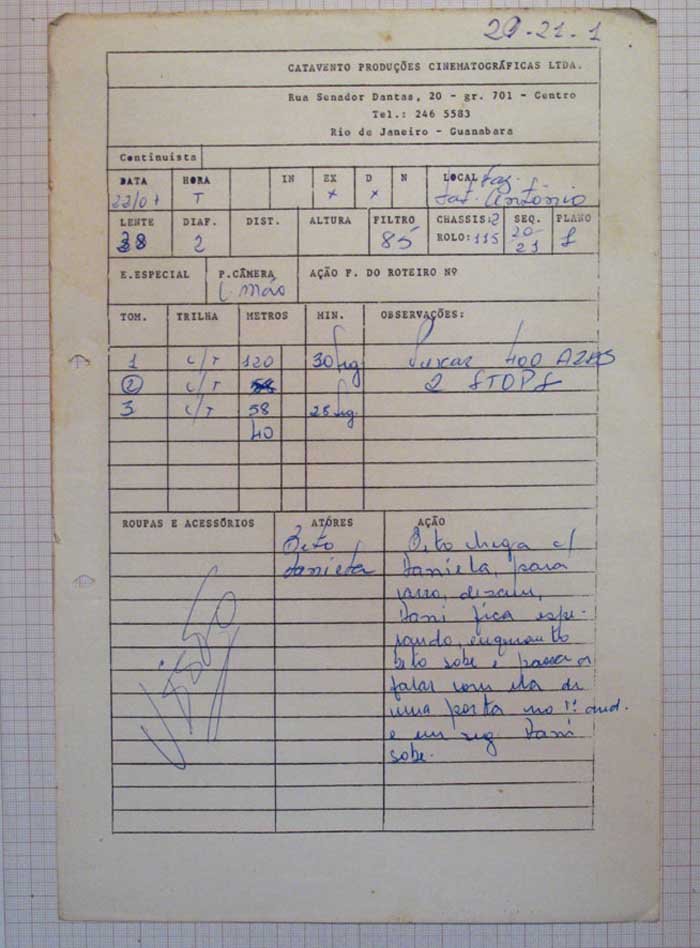 20-21-1
CATAVENTO PRODUÇÕES CINEMATOGRÁFICAS LTDA.
Rua Senador Dantas, 20 - gr. 701 - Centro
Tel.: 246 5583
Rio de Janeiro - Guanabara
Continuista
DATA HORA IN EX D N LOCAL Faz.
22/01 T x x Sto. Antônio
LENTE DIAF. DIST. ALTURA FILTRO CHASSIS: 2 SEQ. PLANO
38 2 85 ROLO: 115 20-21 1
E.ESPECIAL P.CÂMERA AÇÃO P. DO ROTEIRO Nº
C. mão
TOM. TRILHA METROS MIN. OBSERVAÇÕES:
1 c/T 120 30 seg Puxar 400 AZAS
2 c/T 58 2 STOPS
3 c/T 58 25 seg
40
ROUPAS E ACESSÓRIOS ATÔRES AÇÃO
Beto Beto chega c/
Daniela Daniela, para
carro, descem,
Dani fica espe-
rando, enquanto
Beto sobe e passa a
falar com ela de
uma porta no 1º and.
e em seg Dani
sobe.